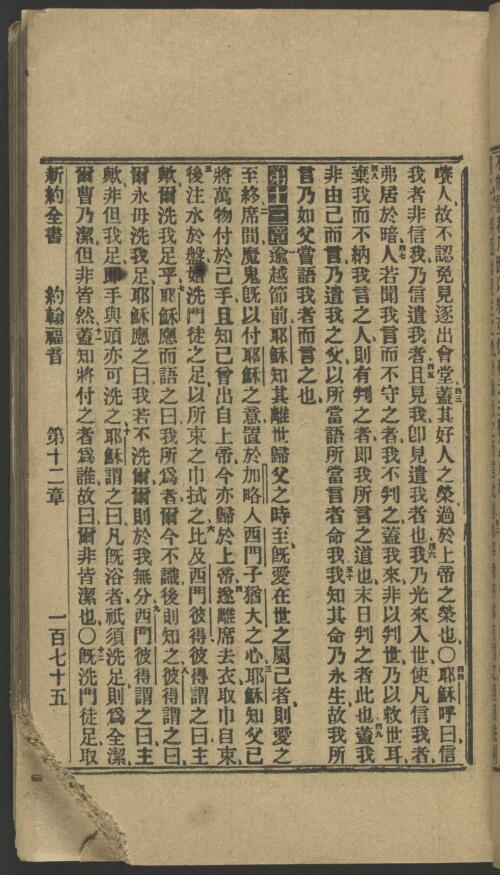 嚌人、故不認免見逐出會堂、蓋其好人之榮過於上帝之榮也、〇耶穌呼曰、信
我者非信我、乃信遣我者、且見我、卽見遣我者也、我乃光來入世、使凡信我者、
弗居於暗、人若聞我言而不守之者、我不判之、蓋我來、非以判世、乃以救世耳、
棄我而不納我言之人、則有判之者、即我所言之道也、末日判之者此也、蓋我
非由己而言、乃遣我之父、以所當語所當言者命我、我知其命乃永生、故我所
言、乃如父嘗語我者而言之也、
第十三章 逾越節前、耶穌知其離世歸父之時至、旣愛在世之屬己者、則愛之
至終、席間、魔鬼旣以付耶穌之意、置於加略人西門子猶大之心、耶穌知父已
將萬物付於己手、且知己曾出自上帝、今亦歸於上帝、遂離席去衣、取巾自束、
後注水於盤、始洗門徒之足、以所束之巾拭之、比及西門彼得、彼得謂之曰、主
歟、爾洗我足乎、耶穌應而語之曰、我所爲者、爾今不識、後則知之、彼得謂之曰、
爾永毋洗我足、耶穌應之曰、我若不洗爾、爾則於我無分、西門彼得謂之曰、主
歟、非但我足、卽手與頭亦可洗之、耶穌謂之曰、凡旣浴者、祇須洗足、則爲全潔、
爾曹乃潔、但非皆然、蓋知將付之者爲誰、故曰、爾非皆潔也、〇旣洗門徒足、取
新約全書 約翰福音 第十二章 一百七十五